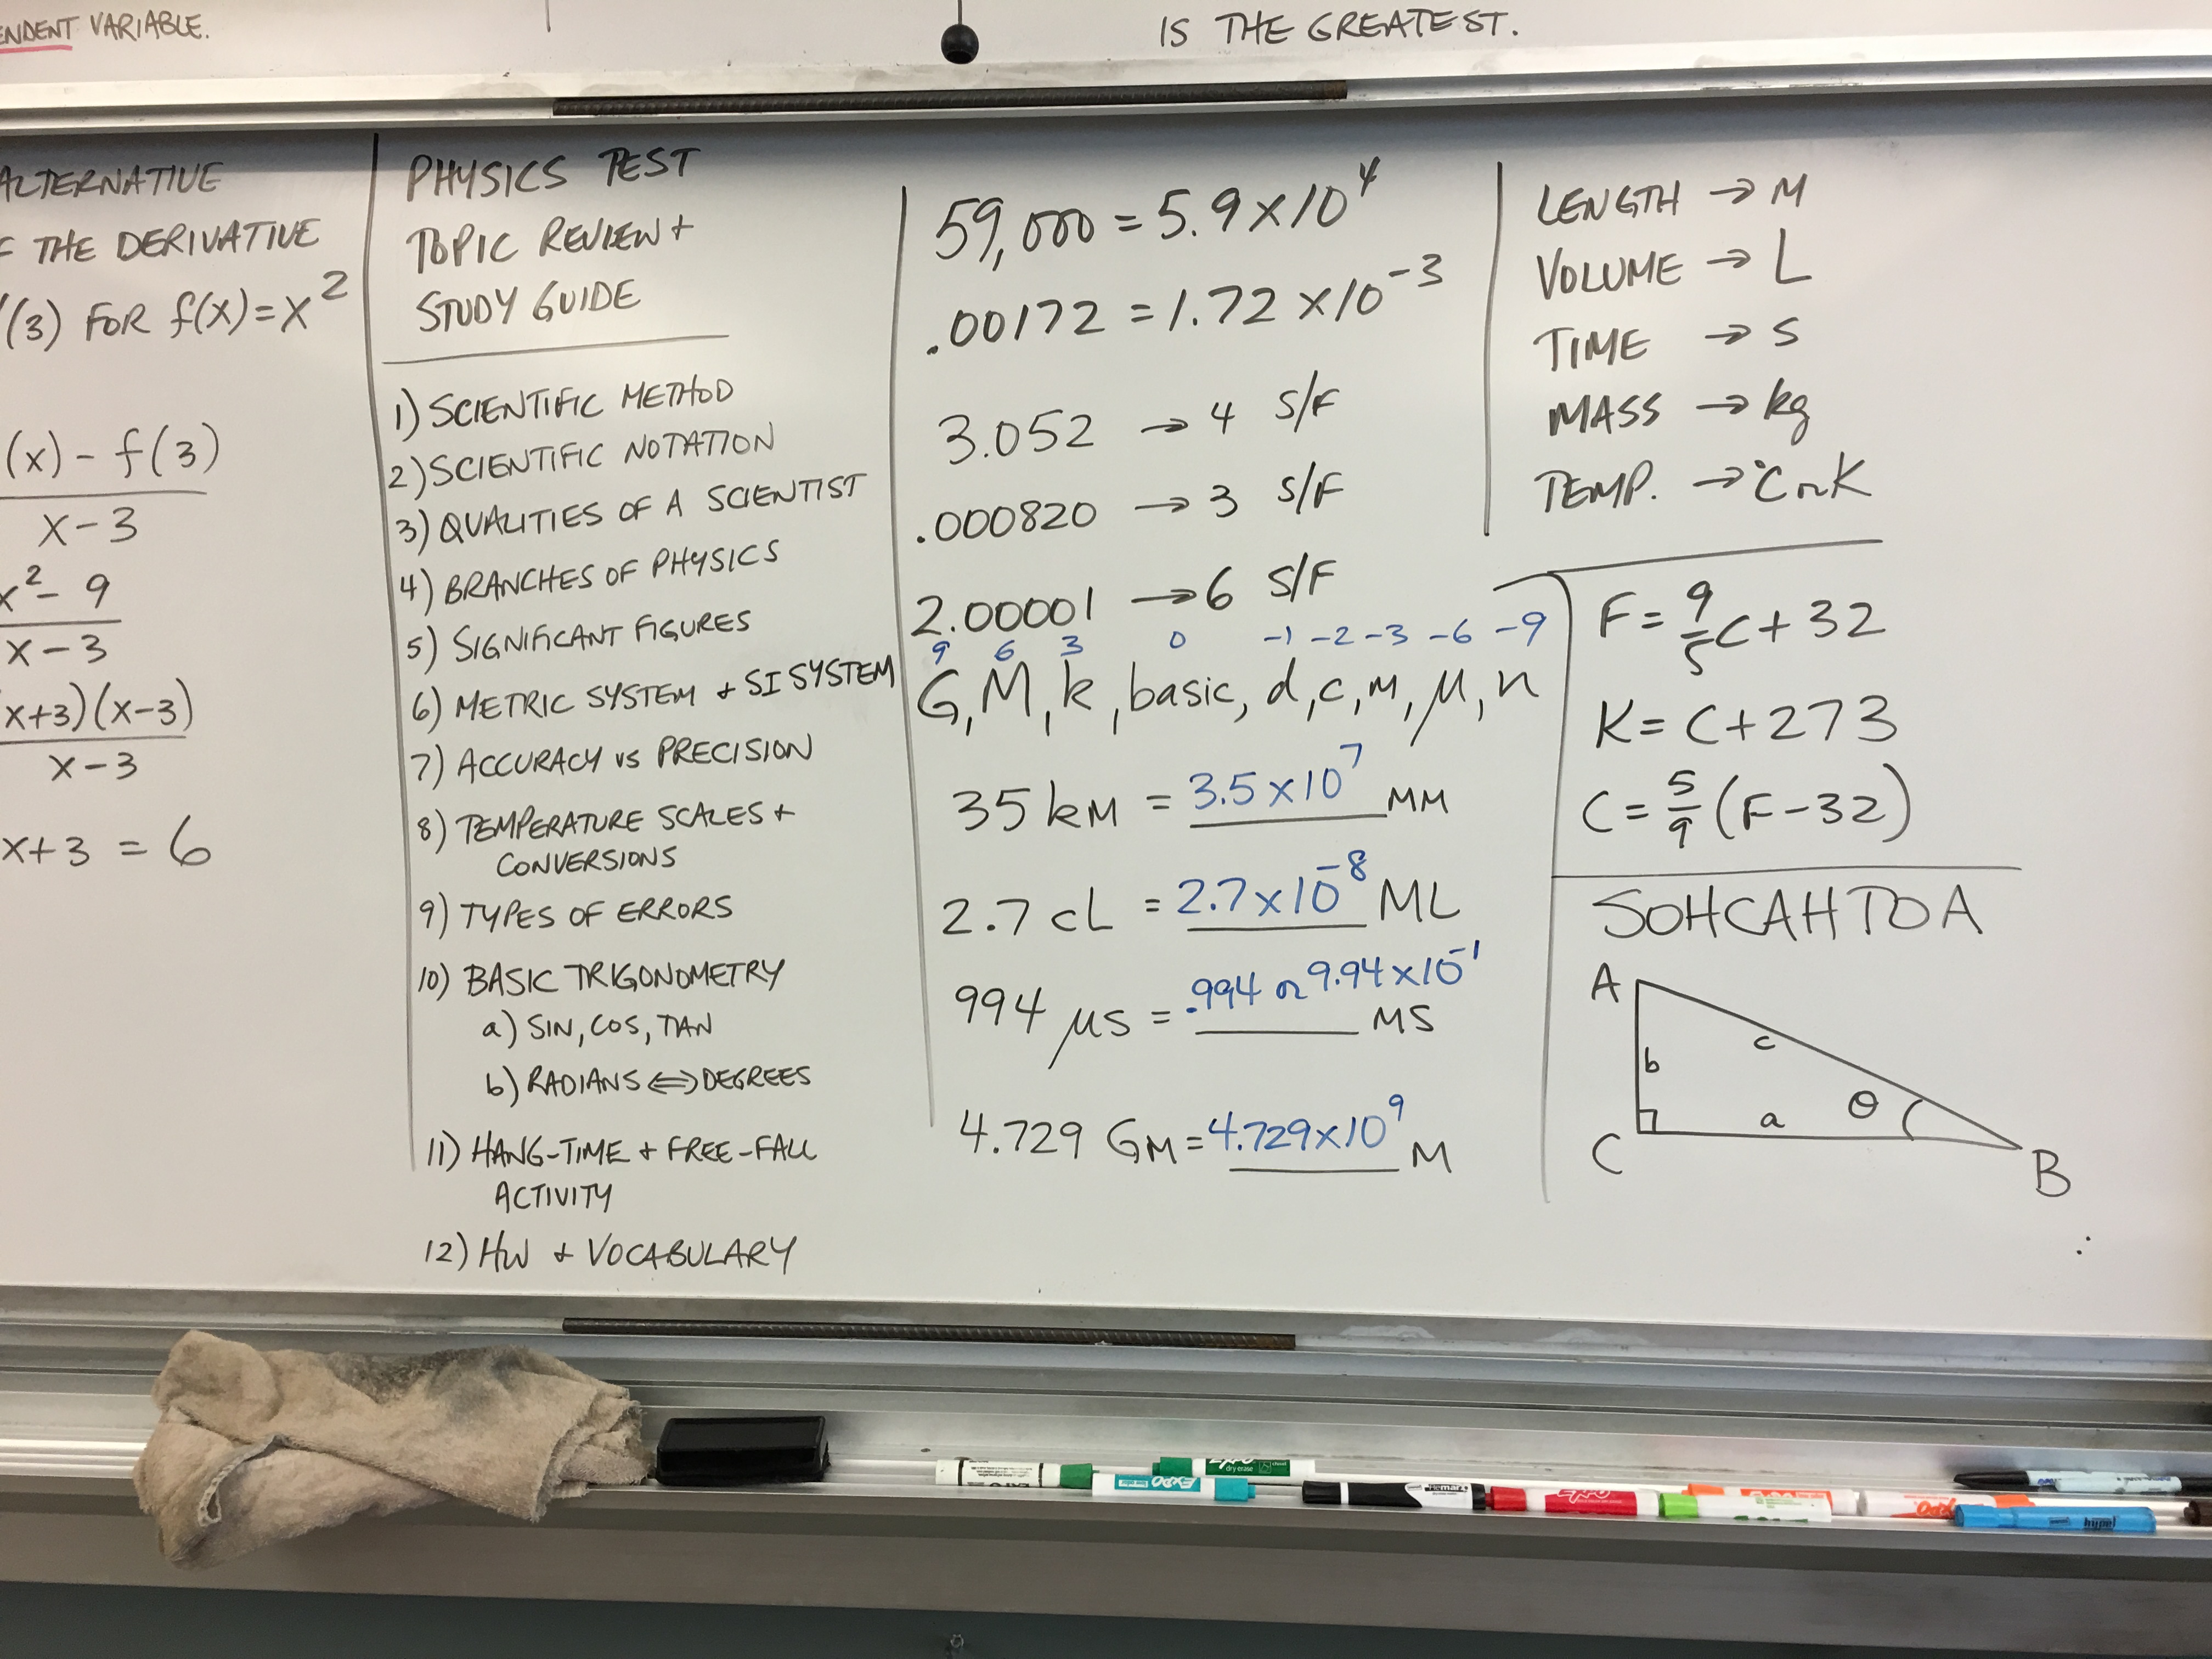 ENDENT VARIABLE.
IS THE GREATEST.
ALTERNATIVE
F THE DERIVATIVE
'(3) FOR f(x)=x²
(x) - f(3)
x-3
x² - 9
x-3
x+3)(x-3)
x-3
x+3 = 6
PHYSICS TEST
TOPIC REVIEW +
STUDY GUIDE
1) SCIENTIFIC METHOD
2) SCIENTIFIC NOTATION
3) QUALITIES OF A SCIENTIST
4) BRANCHES OF PHYSICS
5) SIGNIFICANT FIGURES
6) METRIC SYSTEM + SI SYSTEM
7) ACCURACY VS PRECISION
8) TEMPERATURE SCALES +
CONVERSIONS
9) TYPES OF ERRORS
10) BASIC TRIGONOMETRY
a) SIN, COS, TAN
b) RADIANS ⇔ DEGREES
11) HANG-TIME + FREE-FALL
ACTIVITY
12) HW + VOCABULARY
59,000 = 5.9 x 10⁴
.00172 = 1.72 x 10⁻³
3.052 → 4 S/F
.000820 → 3 S/F
2.00001 → 6 S/F
9 6 3 0 -1 -2 -3 -6 -9
G, M, k, basic, d, c, m, μ, n
35 km = 3.5 x 10⁷ mm
2.7 cL = 2.7 x 10⁻⁸ ML
994 μs = .994 or 9.94 x 10⁻¹ ms
4.729 Gm = 4.729 x 10⁹ m
LENGTH → m
VOLUME → L
TIME → s
MASS → kg
TEMP. → °C or K
F = 9/5 C + 32
K = C + 273
C = 5/9 (F - 32)
SOHCAHTOA
A
c
b
θ
a
C
B
EXPO
EXPO
dry erase
EXPO